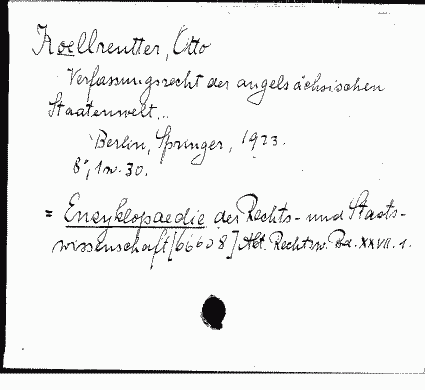 Koellreutter, Otto
Verfassungsrecht der angelsächsischen
Staatenwelt...
Berlin, Springer, 1923.
8°, 
= Enzyklopaedie der Rechts- und Staats-
wissenschaft [66608] Abt. Rechtsw. Bd. XXVII. 1.